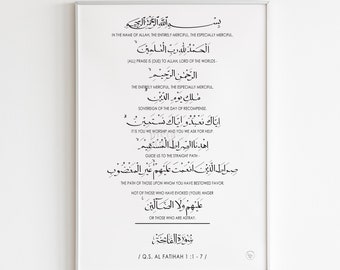 بِسْمِ اللّٰهِ الرَّحْمٰنِ الرَّحِيْمِ
IN THE NAME OF ALLAH, THE ENTIRELY MERCIFUL, THE ESPECIALLY MERCIFUL.
اَلْحَمْدُ لِلّٰهِ رَبِّ الْعٰلَمِيْنَ
(ALL) PRAISE IS (DUE) TO ALLAH, LORD OF THE WORLDS-
الرَّحْمٰنِ الرَّحِيْمِ
THE ENTIRELY MERCIFUL, THE ESPECIALLY MERCIFUL,
مٰلِكِ يَوْمِ الدِّيْنِ
SOVEREIGN OF THE DAY OF RECOMPENSE.
اِيَّاكَ نَعْبُدُ وَاِيَّاكَ نَسْتَعِيْنُ
IT IS YOU WE WORSHIP AND YOU WE ASK FOR HELP.
اِهْدِنَا الصِّرَاطَ الْمُسْتَقِيْمَ
GUIDE US TO THE STRAIGHT PATH -
صِرَاطَ الَّذِيْنَ اَنْعَمْتَ عَلَيْهِمْ غَيْرِ الْمَغْضُوْبِ
THE PATH OF THOSE UPON WHOM YOU HAVE BESTOWED FAVOR,
NOT OF THOSE WHO HAVE EVOKED (YOUR) ANGER
عَلَيْهِمْ وَلَا الضَّآلِّيْنَ
OR THOSE WHO ARE ASTRAY.
سُوْرَةُ الْفَاتِحَةِ
/ Q.S. AL FATIHAH 1 :1 - 7 /